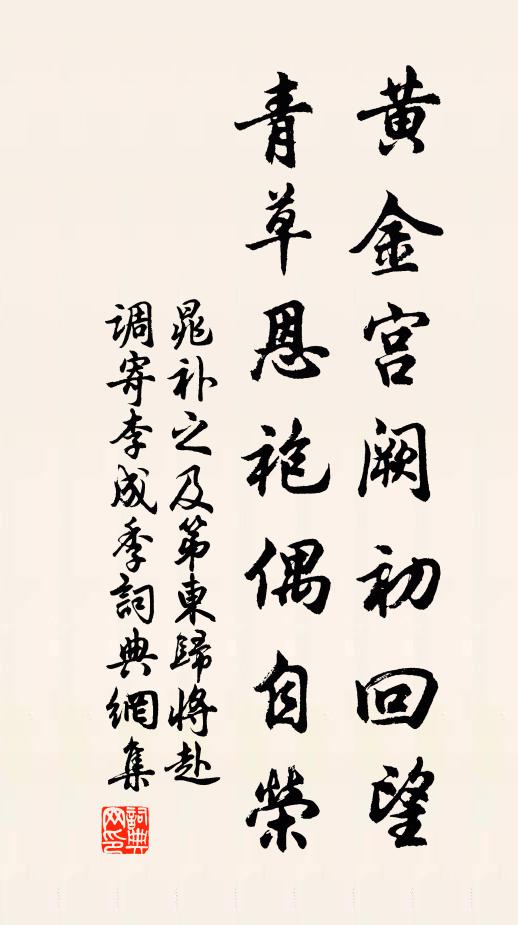 黄金宫阙初回望
青草恩袍偶自榮
晁补之及第東歸將赴
调寄李成季詞典網集
詞典
网印